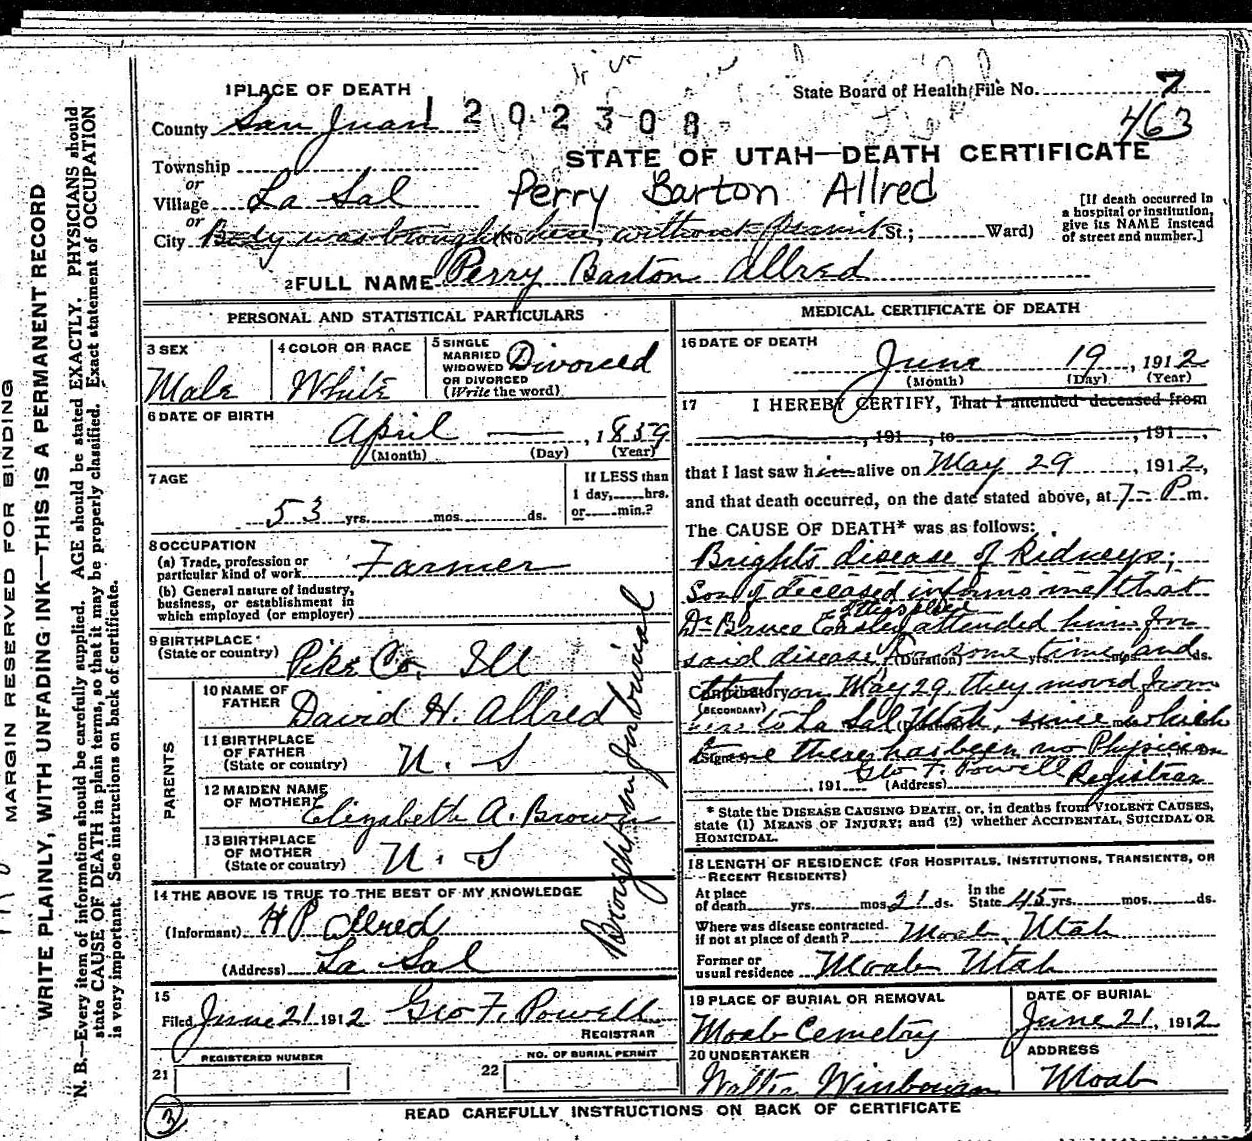 1 PLACE OF DEATH
State Board of Health File No. 7
463
County San Juan
1202308
STATE OF UTAH—DEATH CERTIFICATE
Township
or
Village La Sal
Perry Barton Allred
[If death occurred in
a hospital or institution,
give its NAME instead
of street and number.]
or
City Body was brought (No. here, without permit St.; Ward)
2 FULL NAME Perry Barton Allred
PERSONAL AND STATISTICAL PARTICULARS
3 SEX
Male
4 COLOR OR RACE
White
5 SINGLE
MARRIED
WIDOWED
OR DIVORCED
(Write the word)
Divorced
6 DATE OF BIRTH
April — , 1859
(Month) (Day) (Year)
7 AGE
53 yrs. mos. ds.
If LESS than
1 day, hrs.
or min.?
8 OCCUPATION
(a) Trade, profession or
particular kind of work Farmer
(b) General nature of industry,
business, or establishment in
which employed (or employer)
9 BIRTHPLACE
(State or country) Pike Co. Ill
PARENTS
10 NAME OF
FATHER David H. Allred
11 BIRTHPLACE
OF FATHER
(State or country) U. S
12 MAIDEN NAME
OF MOTHER Elizabeth A. Brown
13 BIRTHPLACE
OF MOTHER
(State or country) U. S
Brought in burial
14 THE ABOVE IS TRUE TO THE BEST OF MY KNOWLEDGE
(Informant) H P Allred
(Address) La Sal
15
Filed June 21 1912 Geo F. Powell
REGISTRAR
REGISTERED NUMBER
21
NO. OF BURIAL PERMIT
22
MEDICAL CERTIFICATE OF DEATH
16 DATE OF DEATH
June 19, 1912
(Month) (Day) (Year)
17 I HEREBY CERTIFY, That I attended deceased from
, 191 , to , 191
that I last saw him alive on May 29, 1912,
and that death occurred, on the date stated above, at 7- P m.
The CAUSE OF DEATH* was as follows:
Brights disease of Kidneys;
Son of deceased informs me that
Dr Bruce attended him for
said disease for (Duration) some time yrs. mos. and ds.
Contributory on May 29, they moved from
(SECONDARY)
here to La Sal Utah, since which
(Duration) yrs. mos.
(Signed) time there has been no Physician
Geo F. Powell Registrar
, 191 (Address)
* State the DISEASE CAUSING DEATH, or, in deaths from VIOLENT CAUSES,
state (1) MEANS OF INJURY; and (2) whether ACCIDENTAL, SUICIDAL OR
HOMICIDAL.
18 LENGTH OF RESIDENCE (FOR HOSPITALS, INSTITUTIONS, TRANSIENTS, OR
RECENT RESIDENTS)
At place
of death yrs. mos. 21 ds.
In the
State 45 yrs. mos. ds.
Where was disease contracted
if not at place of death? Moab, Utah
Former or
usual residence Moab Utah
19 PLACE OF BURIAL OR REMOVAL
Moab Cemetery
DATE OF BURIAL
June 21, 1912
20 UNDERTAKER
Walter Winbourn
ADDRESS
Moab
3
READ CAREFULLY INSTRUCTIONS ON BACK OF CERTIFICATE
MARGIN RESERVED FOR BINDING
WRITE PLAINLY, WITH UNFADING INK—THIS IS A PERMANENT RECORD
N. B.—Every item of information should be carefully supplied. AGE should be stated EXACTLY. PHYSICIANS should
state CAUSE OF DEATH in plain terms, so that it may be properly classified. Exact statement of OCCUPATION
is very important. See instructions on back of certificate.